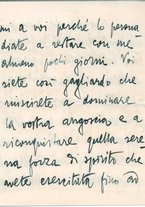 mi a voi perché lo persua
diate a restare con me
almeno pochi giorni. Voi
siete così gagliardo che
riuscirete a dominare
la vostra angoscia e a
riconquistare quella sere
na forza di spirito che
avete esercitata fino ad